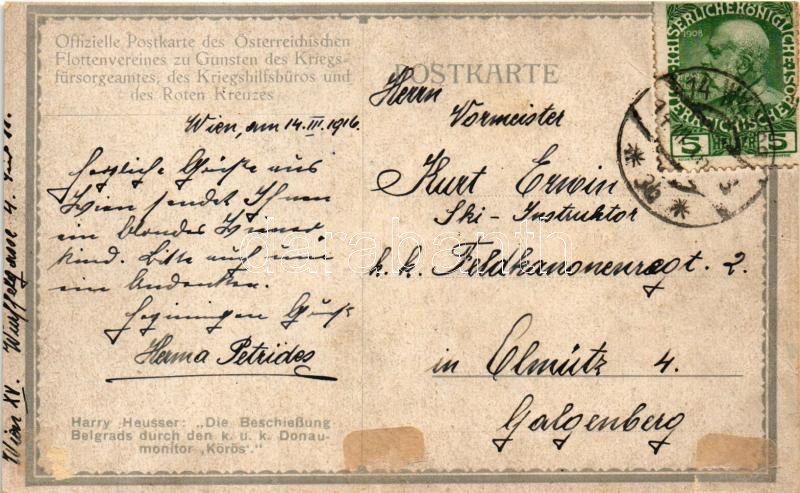 Offizielle Postkarte des Österreichischen
Flottenvereines zu Gunsten des Kriegs-
fürsorgeamtes, des Kriegshilfsbüros und
des Roten Kreuzes
POSTKARTE
Wien, am 14. III. 1916.
Herzliche Grüße aus
Wien sendet Ihnen
ein blondes Wiener
kind. Bitte auch um
ein Andenken.
Grüße
Herma Petrides
Herrn
Vormeister
Kurt Erwin
Ski-Instruktor
k.k. Feldkanonenregt. 2.
in Olmütz 4.
Galgenberg
Harry Heusser: „Die Beschießung
Belgrads durch den k. u. k. Donau-
monitor „Körös“.”
Wien XV. 4.
KAISERLICHE KÖNIGLICHE
1908
5 HELLER 5
14
darabanth